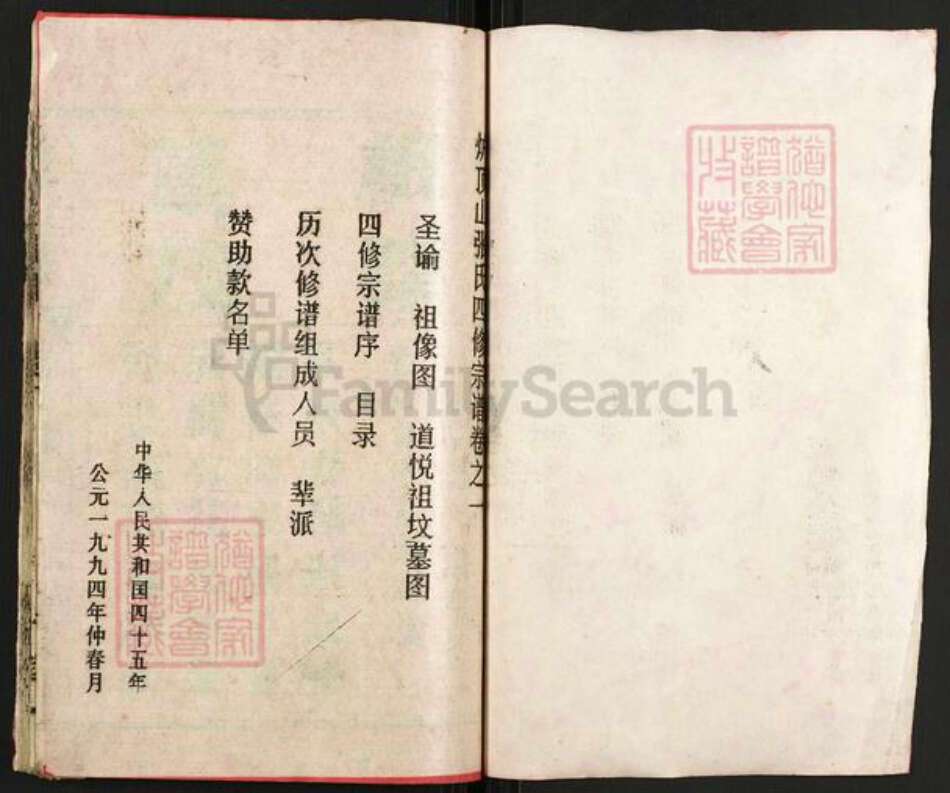 顶山张氏四修宗谱卷之一
圣谕 祖像图 道悦祖坟墓图
四修宗谱序 目录
历次修谱组成人员 辈派
赞助款名单
中华人民共和国四十五年
公元一九九四年仲春月
谱学会
收藏
FamilySearch